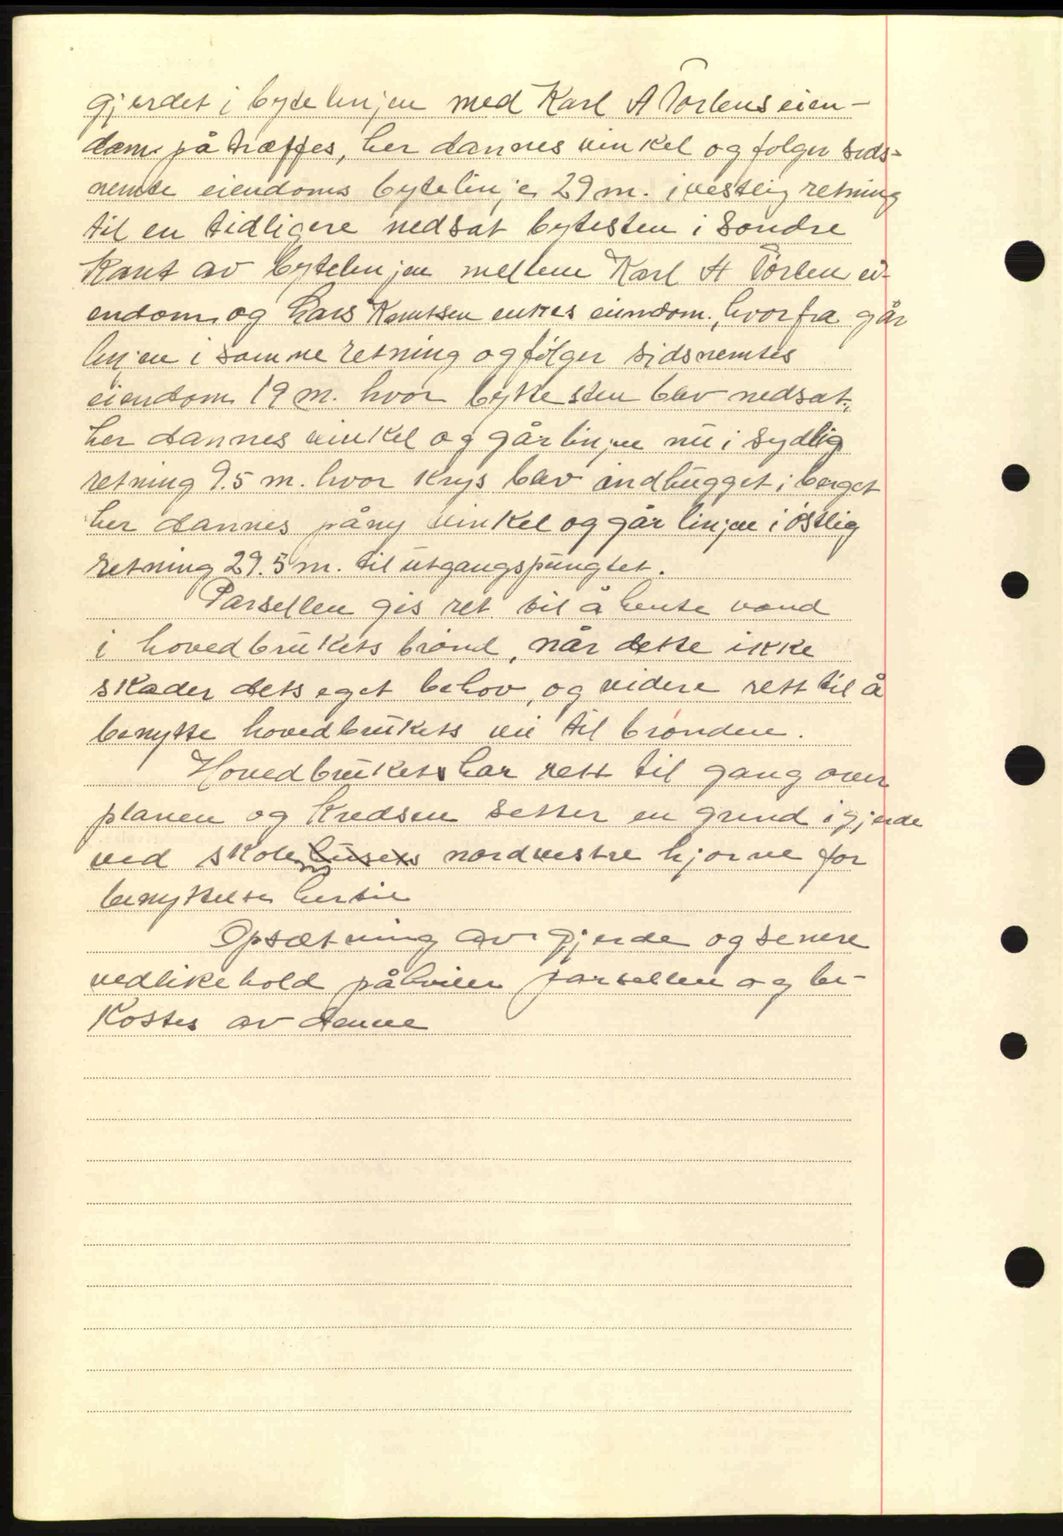 gjerdet i bytelinjen med Karl A Torlens eien-
dom på træffes, her dannes vinkel og følger sids-
nemte eiendoms bytelinje 29 m. i vestlig retning
til en tidligere nedsat bytesten i søndre
Kant av bytelinjen mellem Karl A Torlen ei-
endom og Lars Knutsen enkes eiendom, hvorfra går
linjen i samme retning og følger sidsnemtes
eiendom 19 m. hvor byttesten blev nedsat,
her dannes vinkel og går linjen nu i sydlig
retning 9.5 m. hvor Krys blev indhugget i berget
her dannes påny vinkel og går linjen i østlig
retning 29.5 m. til utgangspungtet.
Parsellen gis ret til å hente vand
i hovedbrukets brønd, når dette ikke
skader dets eget behov, og videre rett til å
benytte hovedbrukets vei til brønden.
Hovedbrukets har rett til gang over
planen og Kredsen setter en grind i gjerde
ved skole husets nordvestre hjørne for
benyttelse hertil
Opsætning av gjerde og senere
vedlikehold påhviler parsellen og be-
Kostes av denne